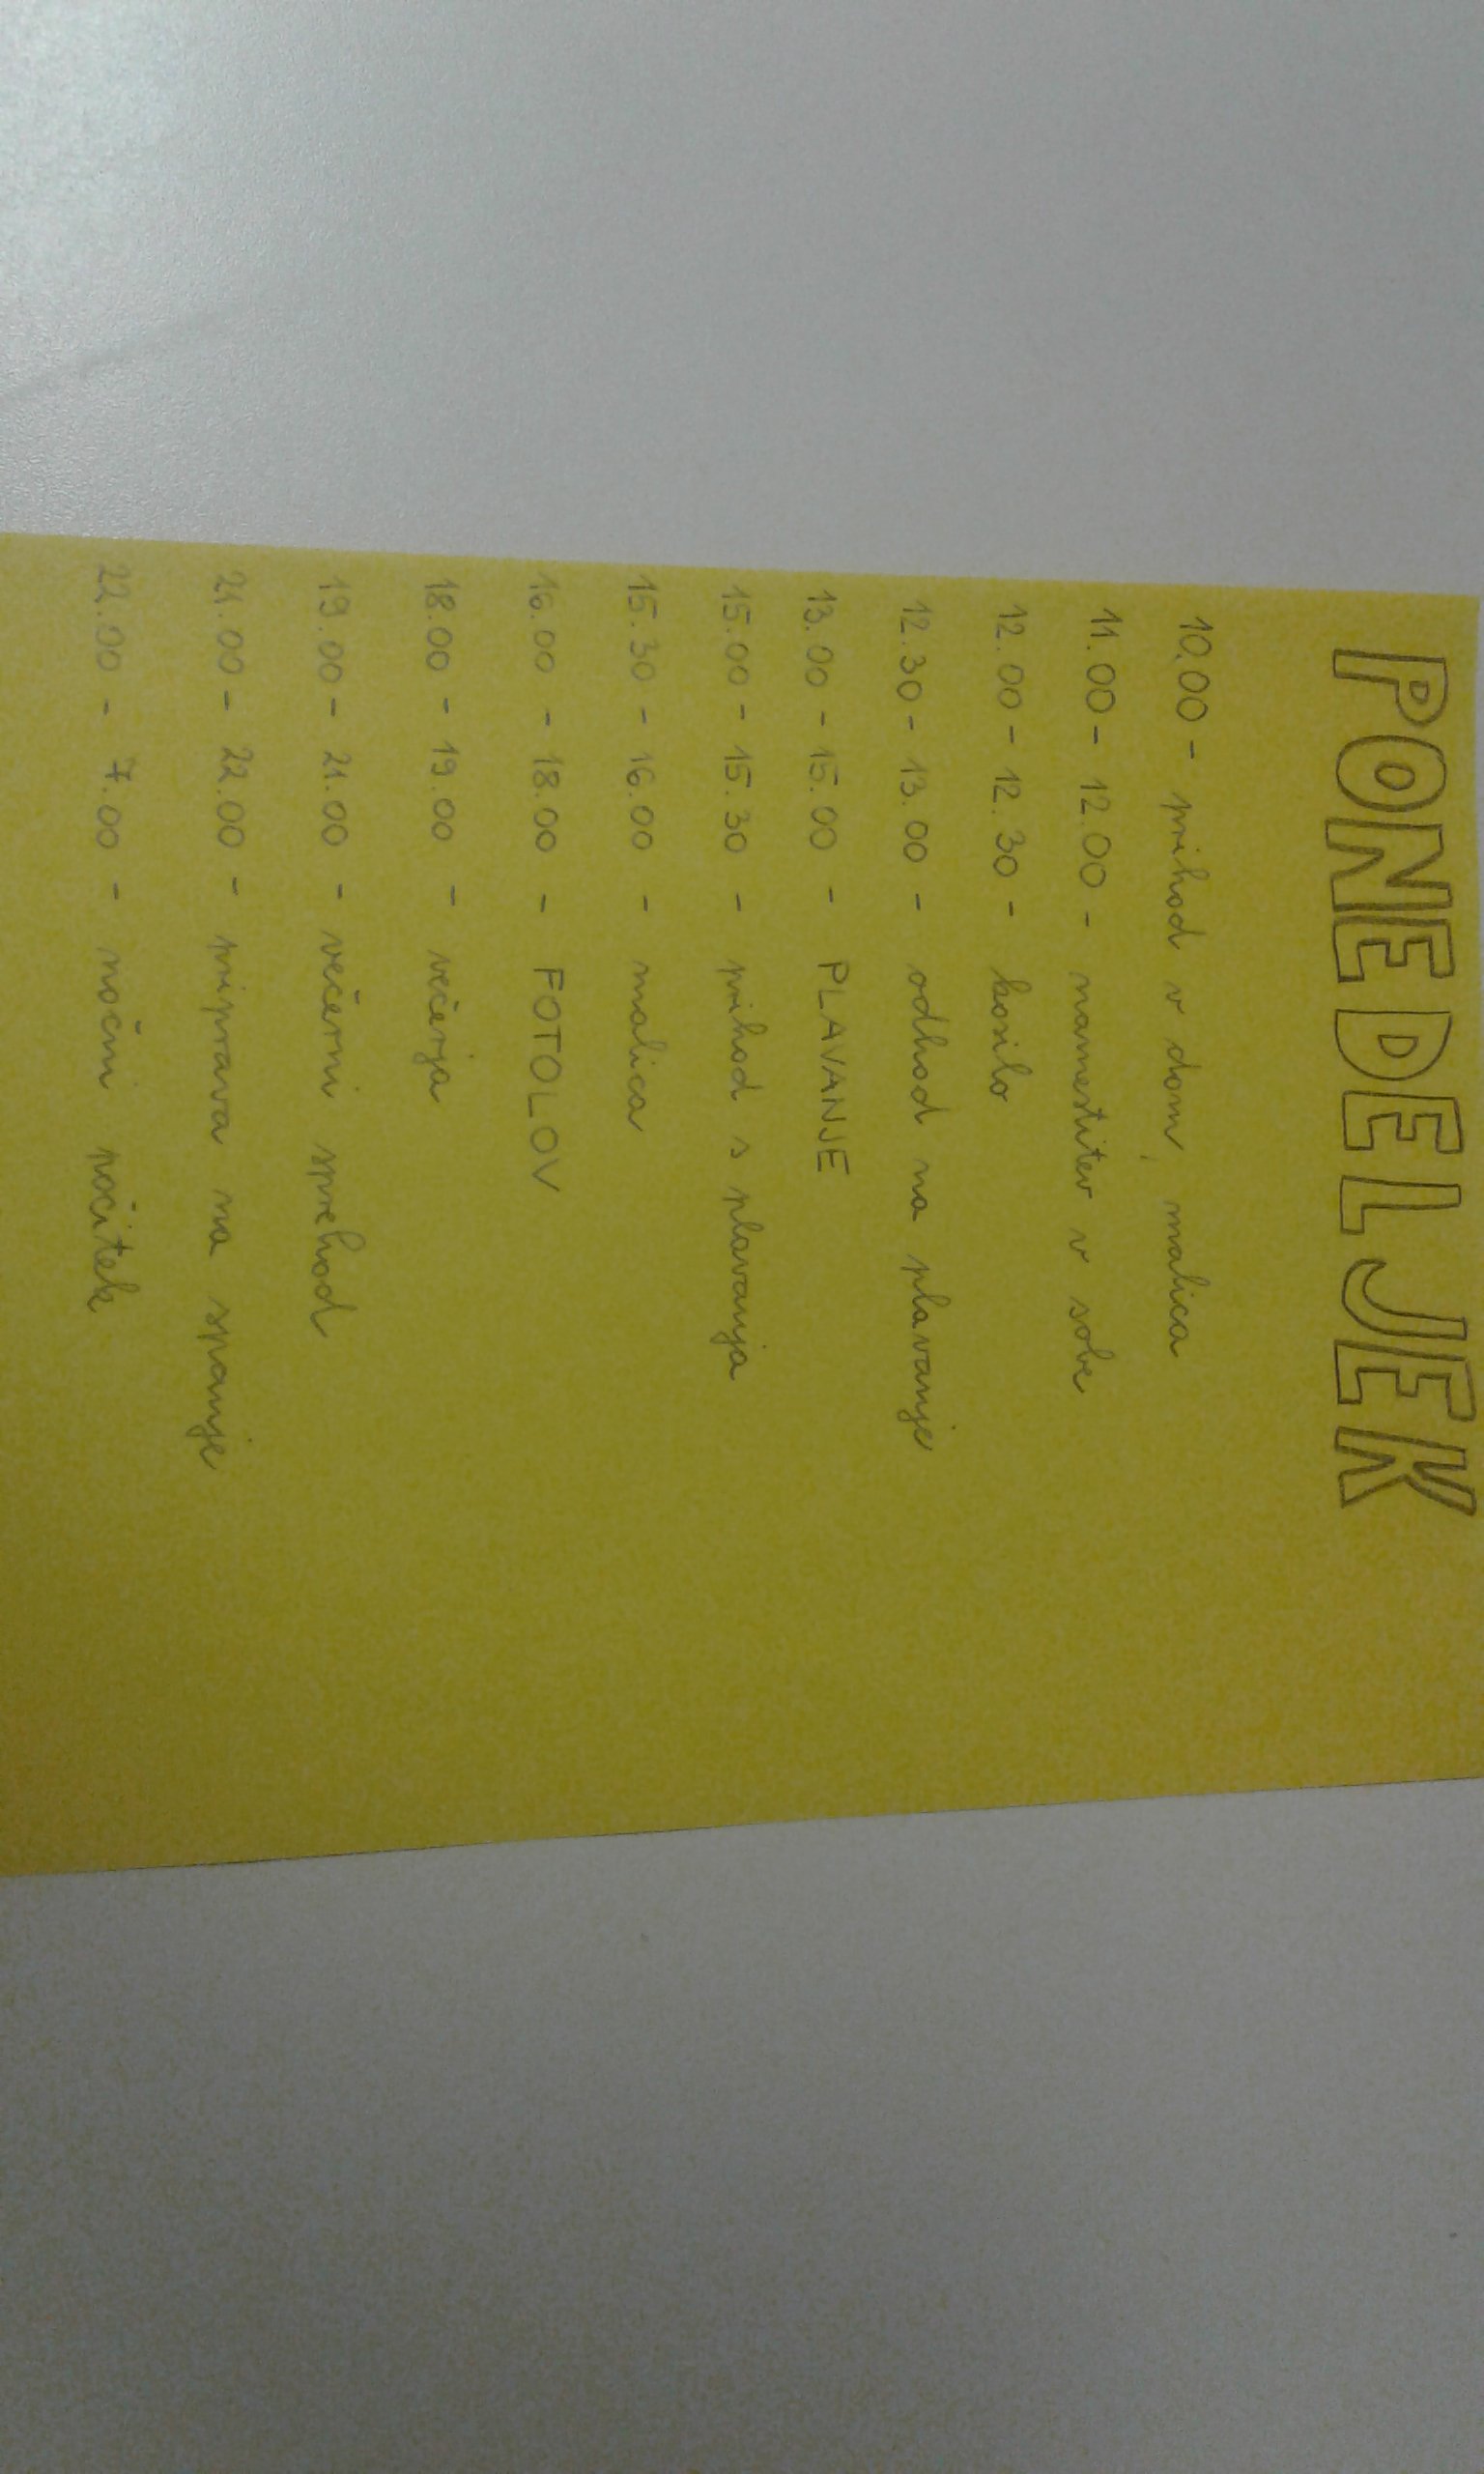 PONEDELJEK
10.00 - prihod v dom, malica
11.00 - 12.00 - namestitev v sobe
12.00 - 12.30 - kosilo
12.30 - 13.00 - odhod na plavanje
13.00 - 15.00 - PLAVANJE
15.00 - 15.30 - prihod s plavanja
15.30 - 16.00 - malica
16.00 - 18.00 - FOTOLOV
18.00 - 19.00 - večerja
19.00 - 21.00 - večerni sprehod
21.00 - 22.00 - priprava na spanje
22.00 - 7.00 - nočni počitek